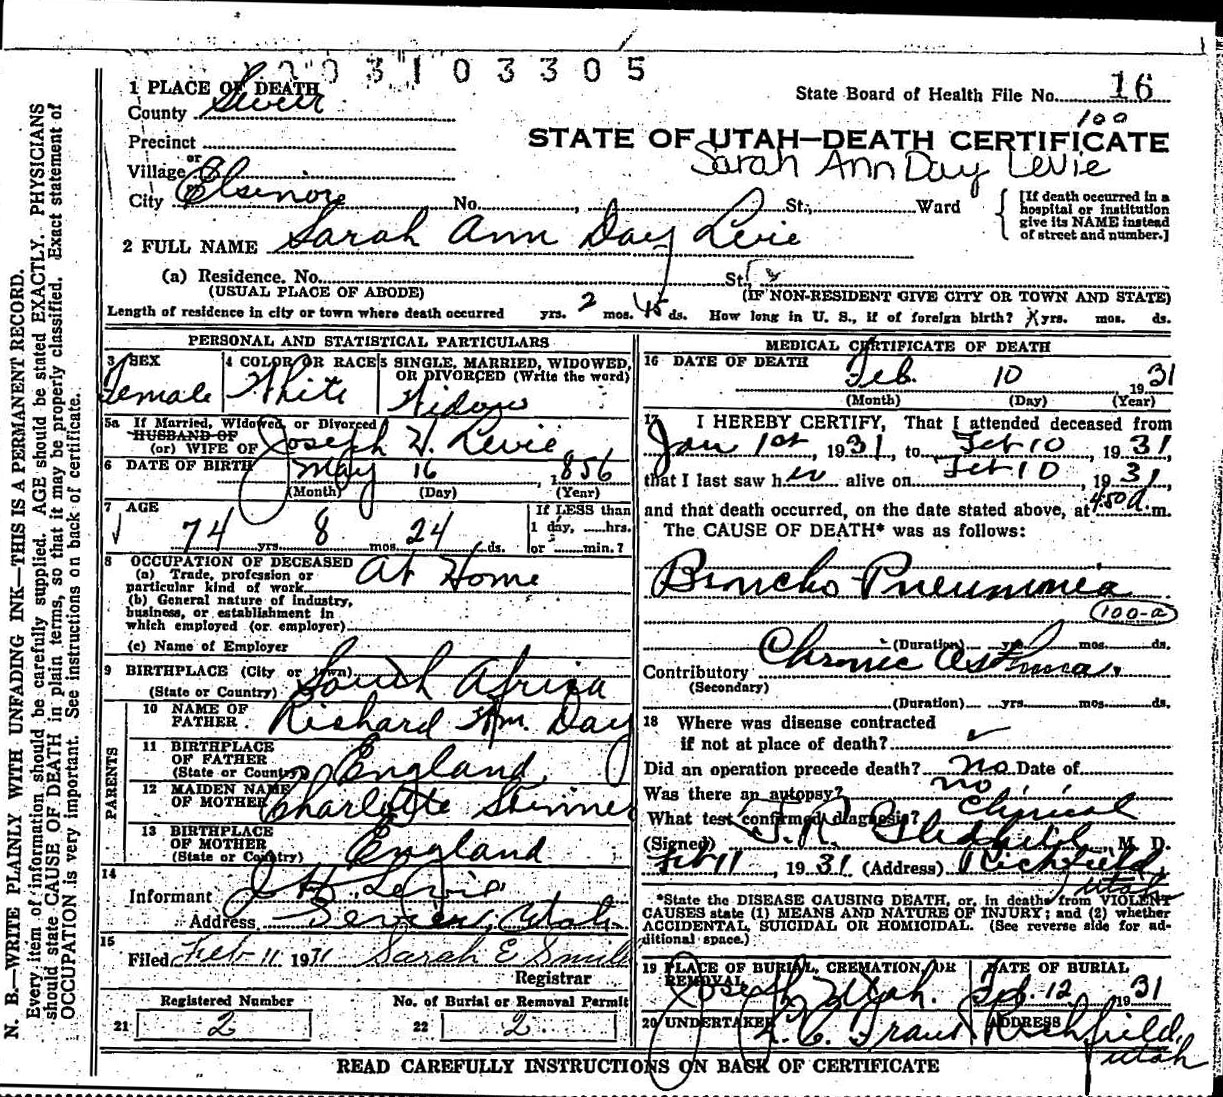 0 0 3 1 0 3 3 0 5
1 PLACE OF DEATH
County Sevier
State Board of Health File No. 16
100
Precinct
STATE OF UTAH—DEATH CERTIFICATE
or
Village
Sarah Ann Day Levie
City Elsinore No. , St., Ward
[If death occurred in a hospital or institution give its NAME instead of street and number.]
2 FULL NAME Sarah Ann Day Levie
(a) Residence. No. St.
(USUAL PLACE OF ABODE) (IF NON-RESIDENT GIVE CITY OR TOWN AND STATE)
Length of residence in city or town where death occurred yrs. 2 mos. 45 ds. How long in U. S., if of foreign birth? yrs. mos. ds.
PERSONAL AND STATISTICAL PARTICULARS
3 SEX 4 COLOR OR RACE 5 SINGLE, MARRIED, WIDOWED,
OR DIVORCED (Write the word)
Female White Widow
5a If Married, Widowed or Divorced
HUSBAND OF
(or) WIFE OF Joseph H. Levie
6 DATE OF BIRTH May 16, 1856
(Month) (Day) (Year)
7 AGE If LESS than
1 day, hrs.
74 yrs. 8 mos. 24 ds. or min.?
8 OCCUPATION OF DECEASED At Home
(a) Trade, profession or
particular kind of work
(b) General nature of industry,
business, or establishment in
which employed (or employer)
(c) Name of Employer
9 BIRTHPLACE (City or town)
(State or Country) South Africa
10 NAME OF
FATHER Richard Wm. Day
11 BIRTHPLACE
OF FATHER
(State or Country) England
12 MAIDEN NAME
OF MOTHER Charlotte Skinner
13 BIRTHPLACE
OF MOTHER
(State or Country) England
PARENTS
14
Informant J H. Levie
Address Sevier, Utah
15
Filed Feb 11 1931 Sarah E
Registrar
Registered Number No. of Burial or Removal Permit
21 2 22 2
MEDICAL CERTIFICATE OF DEATH
16 DATE OF DEATH Feb. 10 1931
(Month) (Day) (Year)
17 I HEREBY CERTIFY, That I attended deceased from
Jan 1st, 1931, to Feb 10, 1931,
that I last saw her alive on Feb 10, 1931,
and that death occurred, on the date stated above, at 4:50 a.m.
The CAUSE OF DEATH* was as follows:
Broncho-Pneumonia
100-a
(Duration) yrs. mos. ds.
Contributory Chronic Asthma.
(Secondary)
(Duration) yrs. mos. ds.
18 Where was disease contracted
if not at place of death?
Did an operation precede death? no Date of
Was there an autopsy? no
What test confirmed diagnosis? Clinical
(Signed) T. R. Gledhill, M. D.
Feb 11, 1931 (Address) Richfield,
Utah
*State the DISEASE CAUSING DEATH, or, in deaths from VIOLENT
CAUSES state (1) MEANS AND NATURE OF INJURY; and (2) whether
ACCIDENTAL, SUICIDAL OR HOMICIDAL. (See reverse side for ad-
ditional space.)
19 PLACE OF BURIAL, CREMATION, OR DATE OF BURIAL
REMOVAL
Joseph, Utah. Feb. 12 1931
20 UNDERTAKER ADDRESS
Richfield,
Utah
READ CAREFULLY INSTRUCTIONS ON BACK OF CERTIFICATE
N. B.—WRITE PLAINLY WITH UNFADING INK—THIS IS A PERMANENT RECORD.
Every item of information should be carefully supplied. AGE should be stated EXACTLY. PHYSICIANS
should state CAUSE OF DEATH in plain terms, so that it may be properly classified. Exact statement of
OCCUPATION is very important. See instructions on back of certificate.